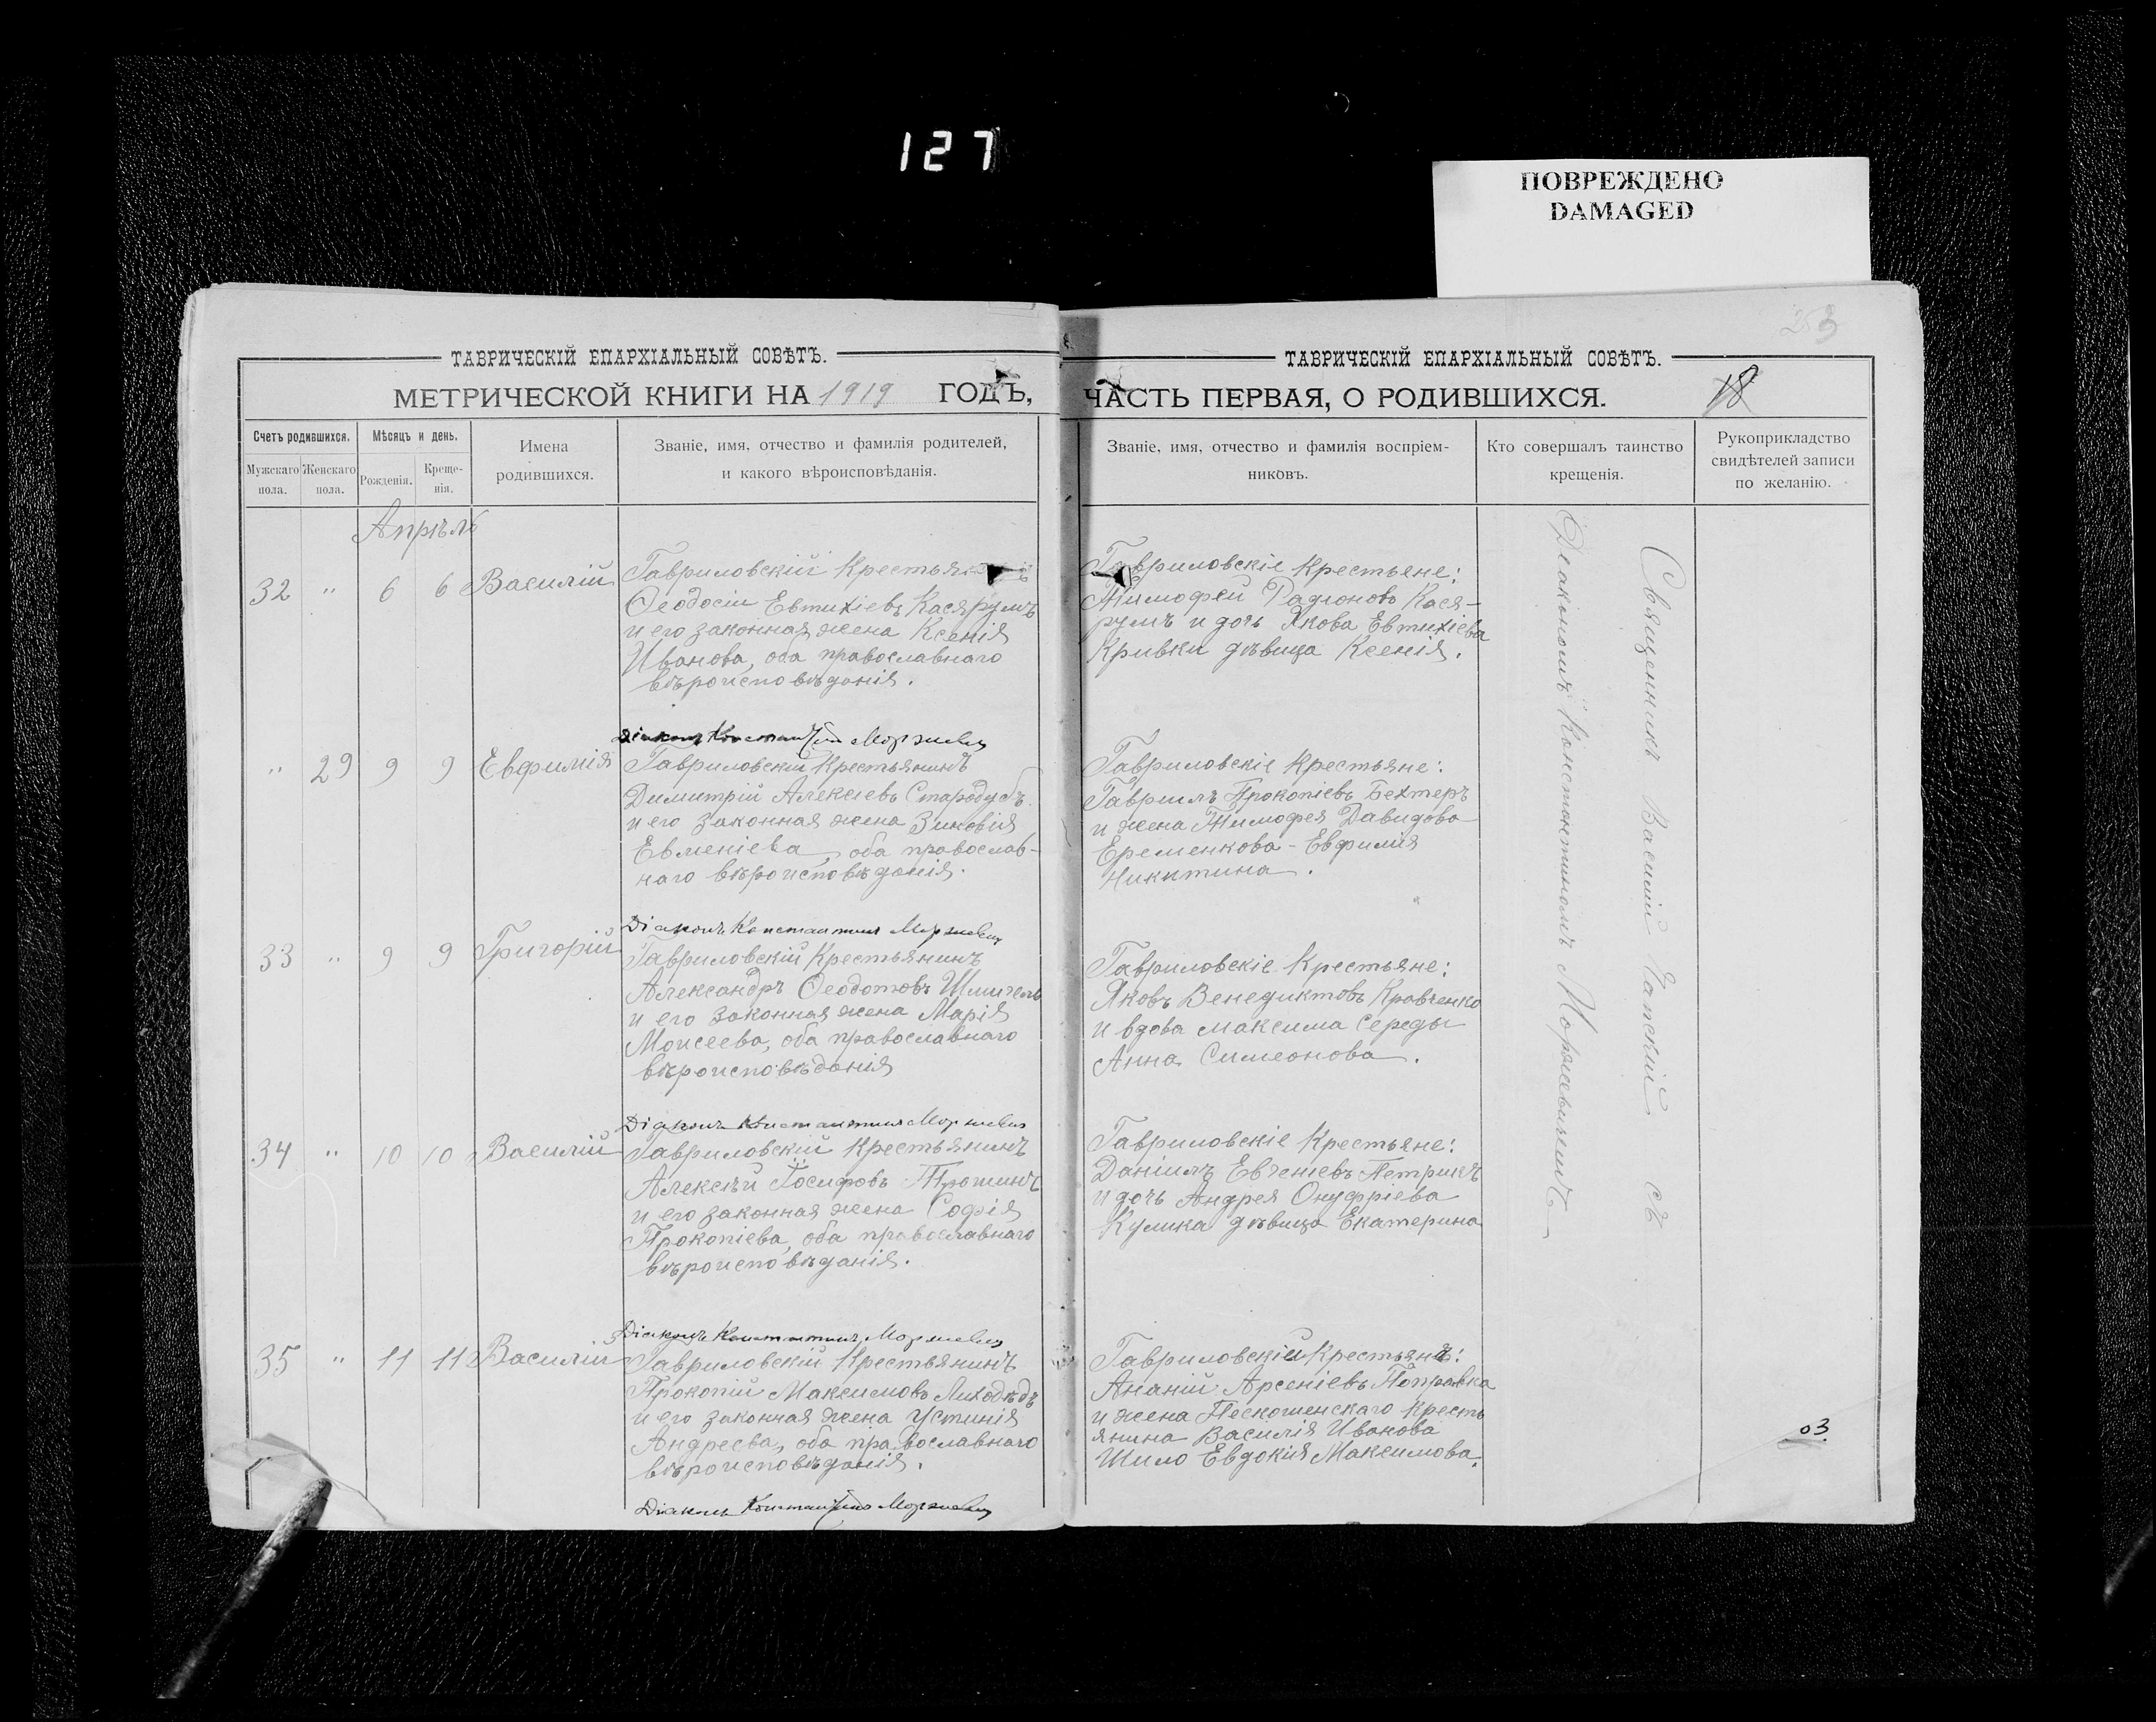 127
ПОВРЕЖДЕНО
DAMAGED
253
ТАВРИЧЕСКІЙ ЕПАРХІАЛЬНЫЙ СОВѢТЪ.
МЕТРИЧЕСКОЙ КНИГИ НА 1919 ГОДЪ,
Счетъ родившихся.
Мѣсяцъ и день.
Имена
родившихся.
Званіе, имя, отчество и фамилія родителей,
и какого вѣроисповѣданія.
Мужскаго
пола.
Женскаго
пола.
Рожденія.
Креще-
нія.
Апрѣль
32 " 6 6 Василій
Гавриловскій Крестьянинъ
Ѳеодосій Евтихіевъ Касярумъ
и его законная жена Ксенія
Иванова, оба православнаго
вѣроисповѣданія.
Діаконъ Константинъ Моржевич
" 29 9 9 Евфимія
Гавриловскій Крестьянинъ
Димитрій Алексіевъ Стародубъ
и его законная жена Зиновія
Евменіева, оба православ-
наго вѣроисповѣданія.
Діаконъ Константинъ Моржевич
33 " 9 9 Григорій
Гавриловскій Крестьянинъ
Александръ Ѳеодотовъ Шмигель
и его законная жена Марія
Моисеева, оба православнаго
вѣроисповѣданія
Діаконъ Константинъ Моржевич
34 " 10 10 Василій
Гавриловскій Крестьянинъ
Алексѣй Іосифовъ Трошинъ
и его законная жена Софія
Прокопіева, оба православнаго
вѣроисповѣданія.
Діаконъ Константинъ Моржевич
35 " 11 11 Василій
Гавриловскій Крестьянинъ
Прокопій Максимовъ Лиходѣдъ
и его законная жена Устинія
Андреева, оба православнаго
вѣроисповѣданія.
Діаконъ Константинъ Моржевич
ТАВРИЧЕСКІЙ ЕПАРХІАЛЬНЫЙ СОВѢТЪ.
ЧАСТЬ ПЕРВАЯ, О РОДИВШИХСЯ.
18
Званіе, имя, отчество и фамилія воспріем-
никовъ.
Кто совершалъ таинство
крещенія.
Рукоприкладство
свидѣтелей записи
по желанію.
Гавриловскіе Крестьене:
Тимофей Радіоновъ Кася-
румъ и дочь Якова Евтихіева
Кривки дѣвица Ксенія.
Гавриловскіе Крестьяне:
Гавріилъ Прокопіевъ Бехтеръ
и жена Тимофея Давидова
Еременкова - Евфимія
Никитина.
Гавриловскіе Крестьяне:
Яковъ Венедиктовъ Кравченко
и вдова Максима Середы
Анна Симеонова.
Гавриловскіе Крестьяне:
Даніилъ Евгеніевъ Петрикъ
и дочь Андрея Онуфріева
Кулика дѣвица Екатерина
Гавриловскіе Крестьяне:
Ананій Арсеніевъ Поправка
и жена Пескошенскаго Кресть
янина Василія Иванова
Шило Евдокія Максимова.
Священникъ Василій съ
Діакономъ Константиномъ Моржевичемъ
03